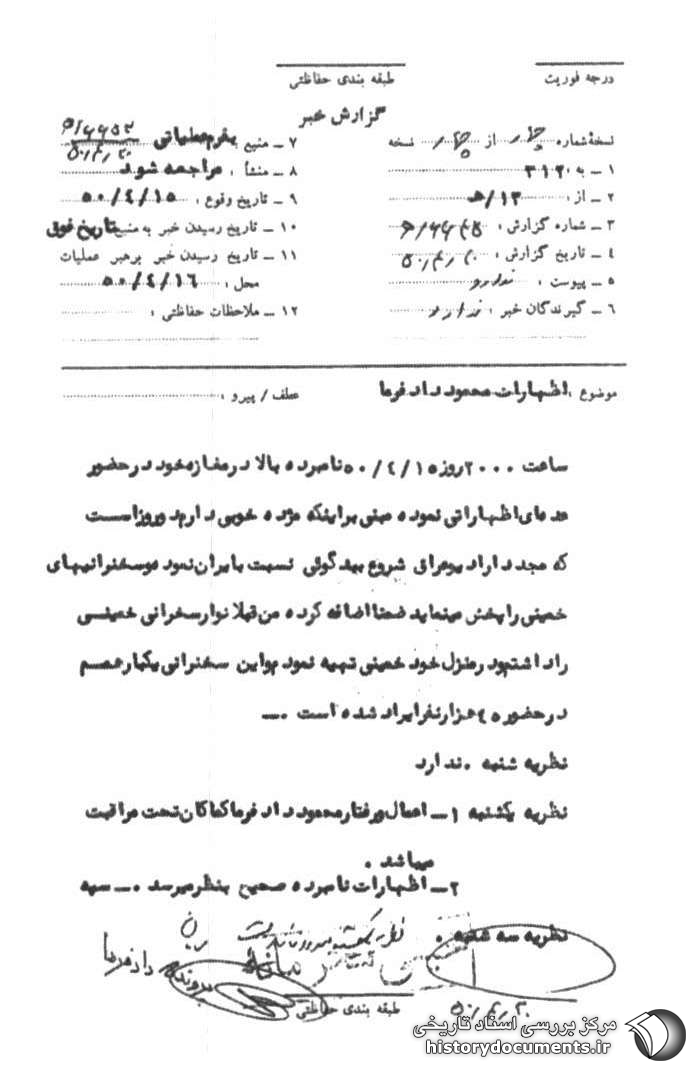 درجه فوریت
طبقه بندی حفاظتی
گزارش خبر
نسخهٔ شماره از نسخه
۱ ـ به ۳۱۲۰
۲ ـ از : ۱۲/ه
۳ ـ شماره گزارش :
۴ ـ تاریخ گزارش :
۵ ـ پیوست : ندارد
۶ ـ گیرندگان خبر : ندارد
۷ ـ منبع بفرم عملیاتی
۸ ـ منشأ : مراجعه شود
۹ ـ تاریخ وقوع : ۵۰/٤/۱۵
۱۰ ـ تاریخ رسیدن خبر به منبع تاریخ فوق
۱۱ ـ تاریخ رسیدن خبر برهبر عملیات
محل : ۵۰/٤/۱٦
۱۲ ـ ملاحظات حفاظتی :
موضوع : اظهارات محمود دادفرما
عطف / پیرو :
ساعت ۲۰۰۰ روز ۵۰/٤/۱۵ نامبرده بالا در مغازه خود در حضور
عده‌ای اظهاراتی نموده مبنی براینکه مژده خوبی دارم دو روز است
که مجددا رادیو عراق شروع ببدگوئی نسبت بایران نموده و سخنرانیهای
خمینی را پخش مینماید ضمنا اضافه کرده من قبلا نوار سخرانی خمینی
را داشتم و در منزل خود خمینی تهیه نموده‌ام و این سخنرانی یکبار هم
در حضور ٤۵ هزار نفر ایراد شده است .ـ
نظریه شنبه . ندارد
نظریه یکشنبه ۱ـ اعمال و رفتار محمود دادفرما کماکان تحت مراقبت
میباشد .
۲ـ اظهارات نامبرده صحیح بنظر میرسد .ـ سپه
نظریه سه شنبه .
پرونده دادفرما
طبقه بندی حفاظتی
مرکز بررسی اسناد تاریخی
historydocuments.ir